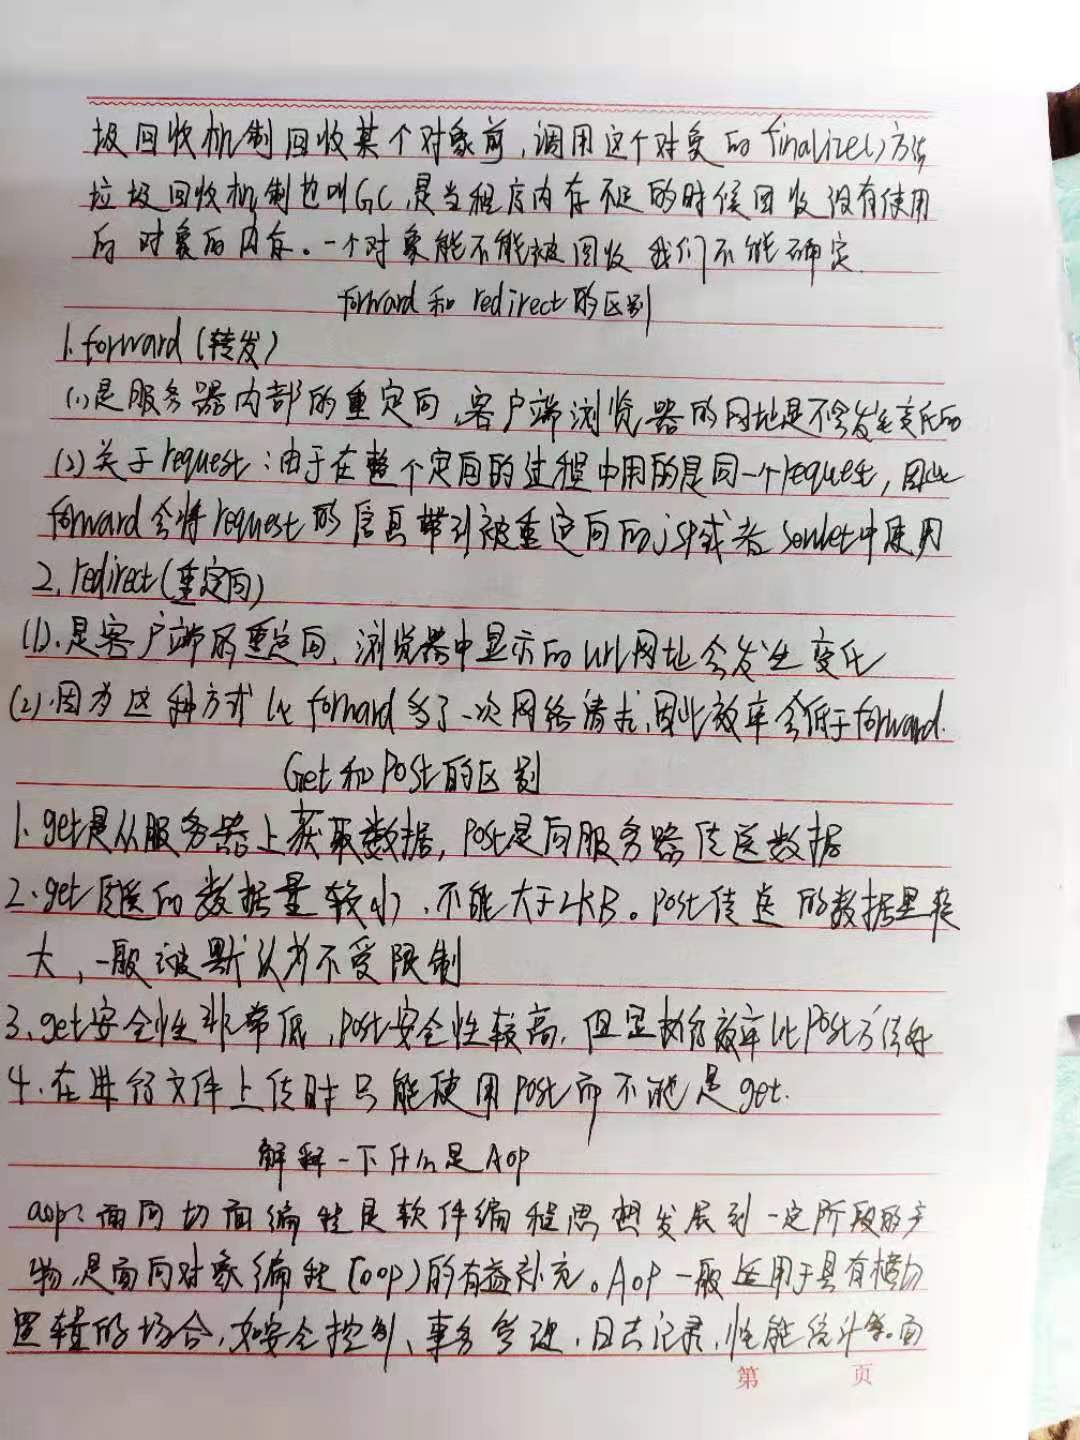 圾回收机制回收某个对象前，调用这个对象的finalize()方法
垃圾回收机制也叫GC，是当程序内存不足的时候回收没有使用
的对象的内存。一个对象能不能被回收我们不能确定.
forward和redirect的区别
1.forward(转发)
(1)是服务器内部的重定向，客户端浏览器的网址是不会发生变化的
(2)关于request：由于在整个定向的过程中用的是同一个request，因此
forward会将request的信息带到被重定向的jsp或者Servlet中使用
2.redirect(重定向)
(1).是客户端的重定向，浏览器中显示的url网址会发生变化
(2).因为这种方式比forward多了一次网络请求，因此效率会低于forward.
Get和Post的区别
1.get是从服务器上获取数据，Post是向服务器传送数据
2.get传送的数据量较小，不能大于2KB。Post传送的数据量较
大，一般被默认为不受限制
3.get安全性非常低，Post安全性较高，但是执行效率比Post方法好
4.在进行文件上传时只能使用Post而不能是get.
解释一下什么是Aop
aop：面向切面编程是软件编程思想发展到一定阶段的产
物，是面向对象编程(oop)的有益补充。Aop一般适用于具有横切
逻辑的场合，如安全控制、事务管理，日志记录，性能统计等。面
第 页